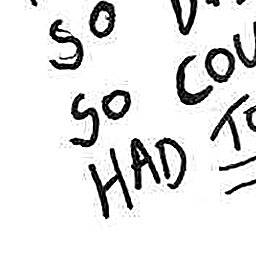 SO
SO COU
HAD TO